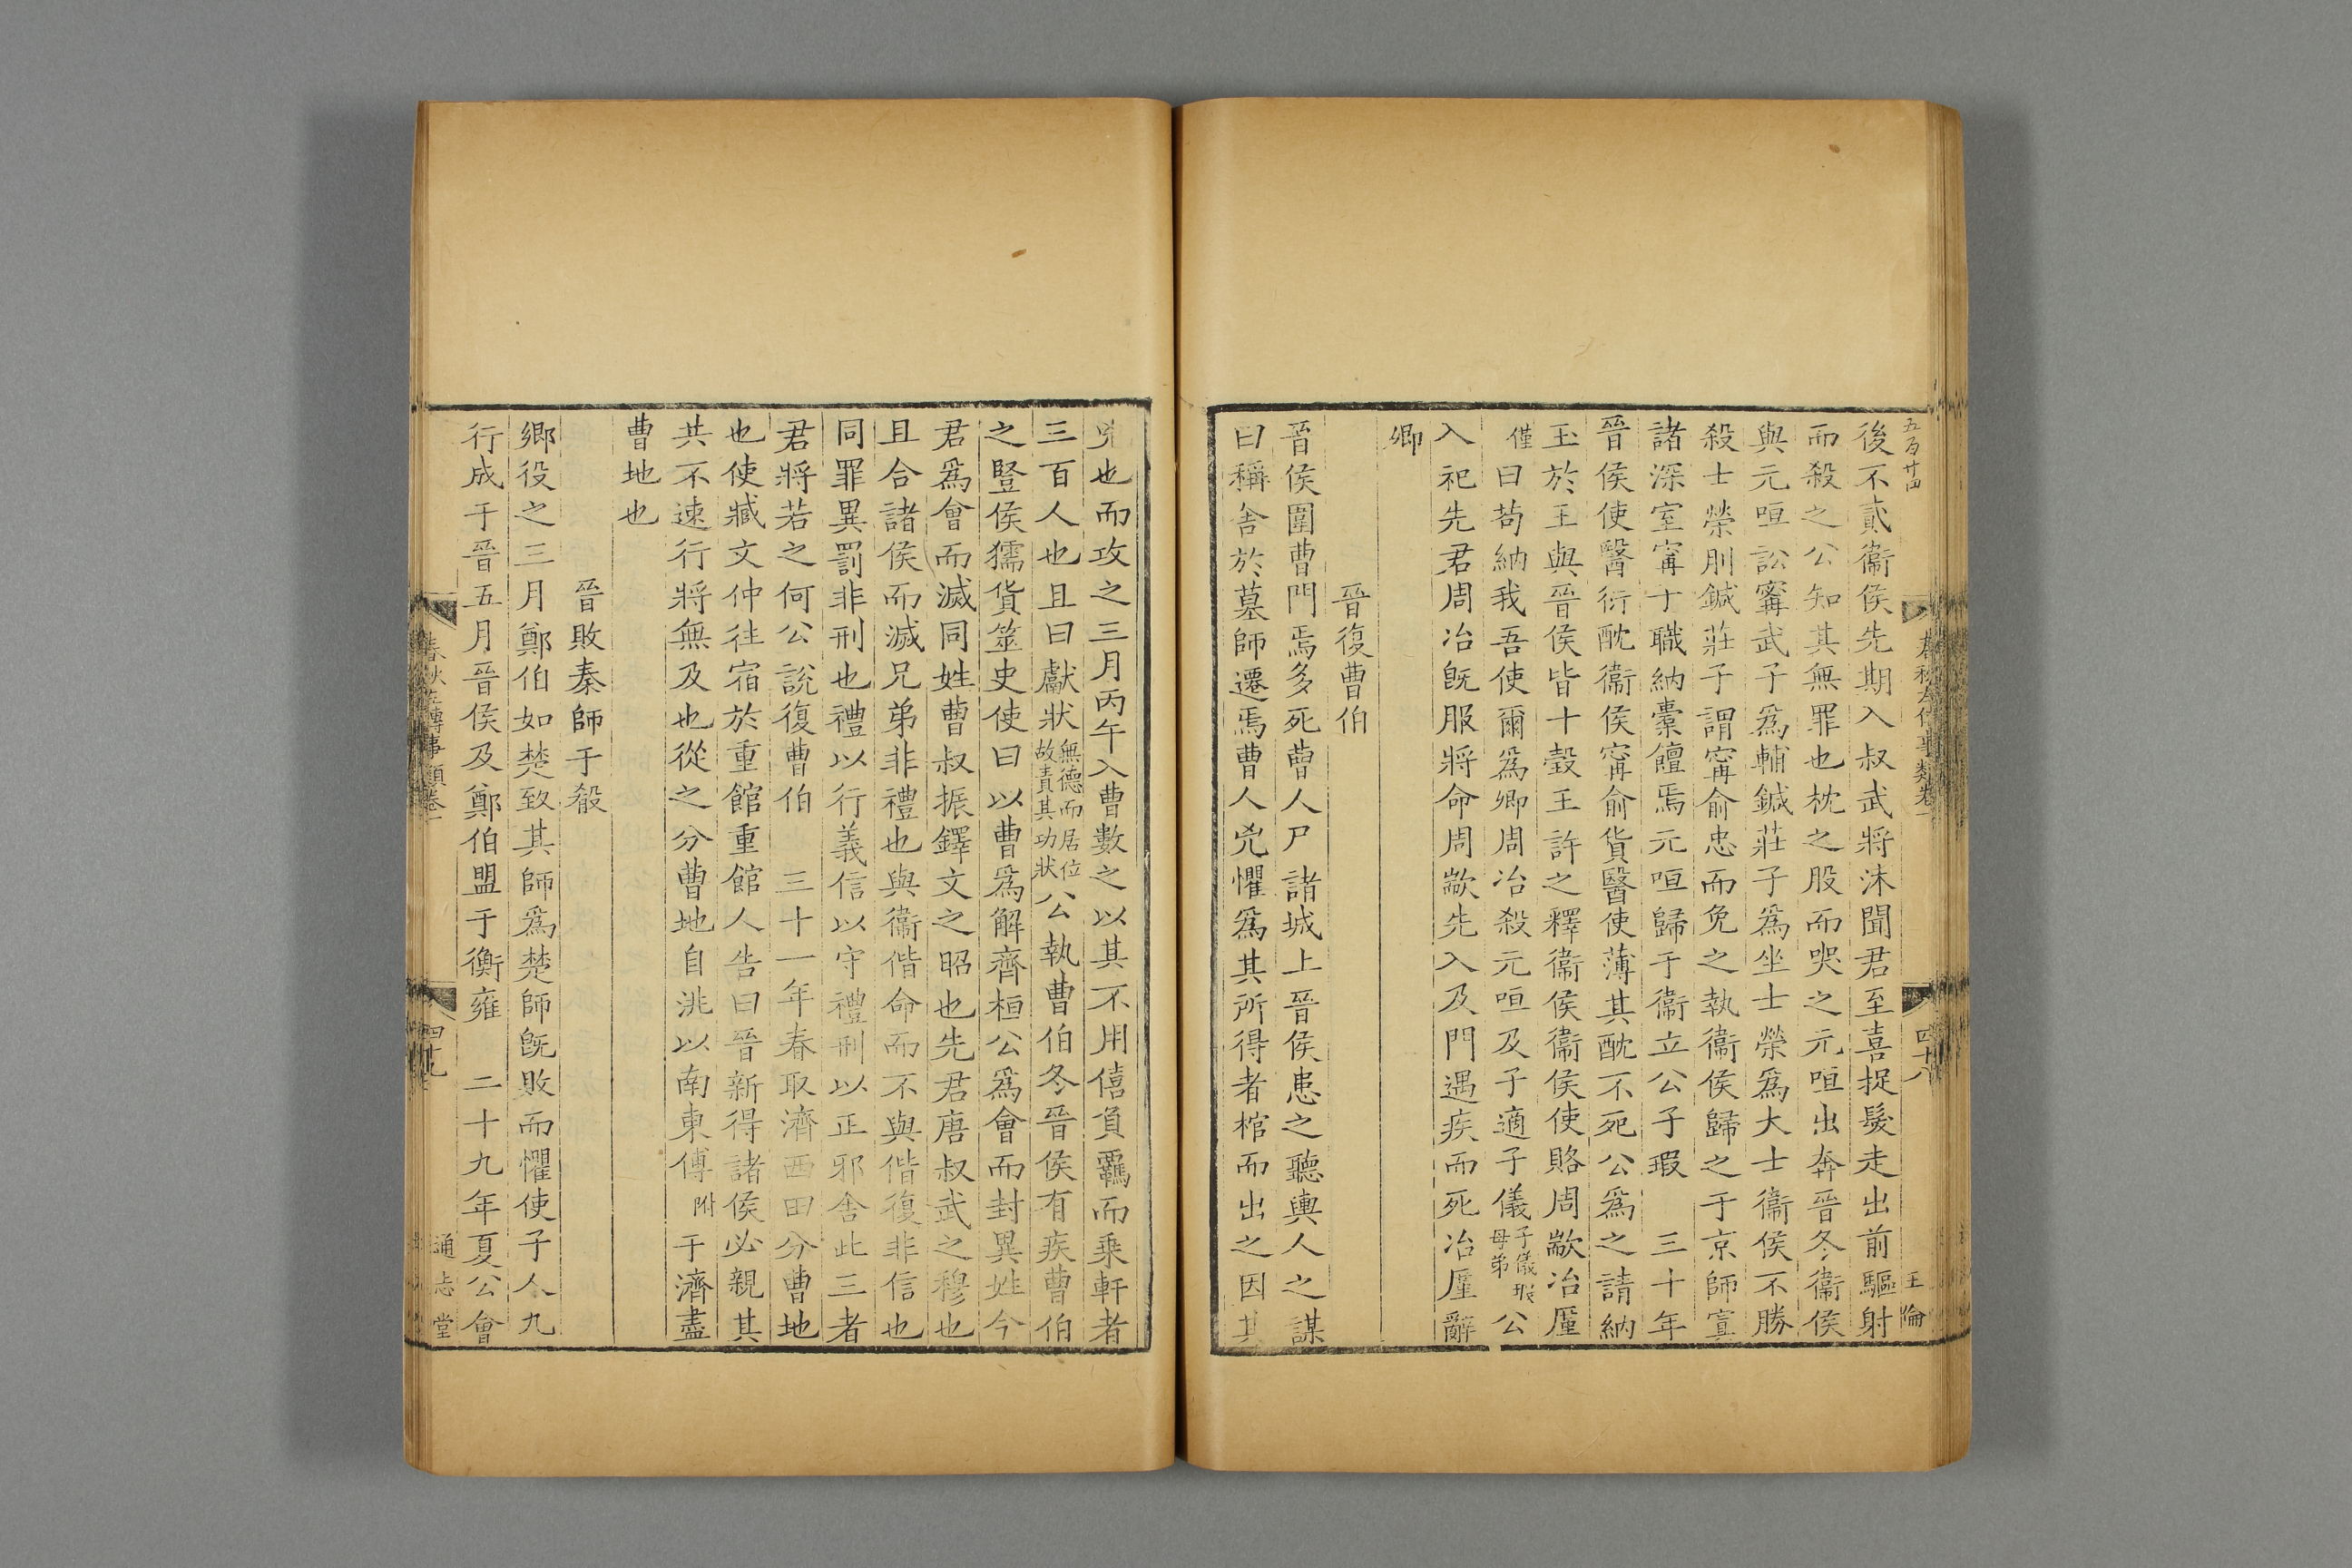 五百廿四
春秋左傳事類卷一
四十八
王倫
後不貳衞侯先期入叔武將沐聞君至喜捉髮走出前驅射
而殺之公知其無罪也枕之股而哭之元咺出奔晉冬衞侯
與元咺訟甯武子爲輔鍼莊子爲坐士榮爲大士衞侯不勝
殺士榮刖鍼莊子謂甯俞忠而免之執衞侯歸之于京師寘
諸深室甯子職納橐饘焉元咺歸于衞立公子瑕　三十年
晉侯使醫衍酖衞侯甯俞貨醫使薄其酖不死公爲之請納
玉於王與晉侯皆十瑴王許之釋衞侯衞侯使賂周歂冶廑
僅曰苟納我吾使爾爲卿周冶殺元咺及子適子儀子儀瑕母弟公
入祀先君周冶旣服將命周歂先入及門遇疾而死冶廑辭
卿
晉復曹伯
晉侯圍曹門焉多死曹人尸諸城上晉侯患之聽輿人之謀
曰稱舍於墓師遷焉曹人兇懼爲其所得者棺而出之因其
兇也而攻之三月丙午入曹數之以其不用僖負羈而乘軒者
三百人也且曰獻狀無德而居位故責其功狀公執曹伯冬晉侯有疾曹伯
之豎侯獳貨筮史使曰以曹爲解齊桓公爲會而封異姓今
君爲會而滅同姓曹叔振鐸文之昭也先君唐叔武之穆也
且合諸侯而滅兄弟非禮也與衞偕命而不與偕復非信也
同罪異罰非刑也禮以行義信以守禮刑以正邪舍此三者
君將若之何公說復曹伯　三十一年春取濟西田分曹地
也使臧文仲往宿於重館重館人告曰晉新得諸侯必親其
共不速行將無及也從之分曹地自洮以南東傅附于濟盡
曹地也
晉敗秦師于殽
鄉役之三月鄭伯如楚致其師爲楚師旣敗而懼使子人九
行成于晉五月晉侯及鄭伯盟于衡雍　二十九年夏公會
春秋左傳事類卷一
四十九
通志堂